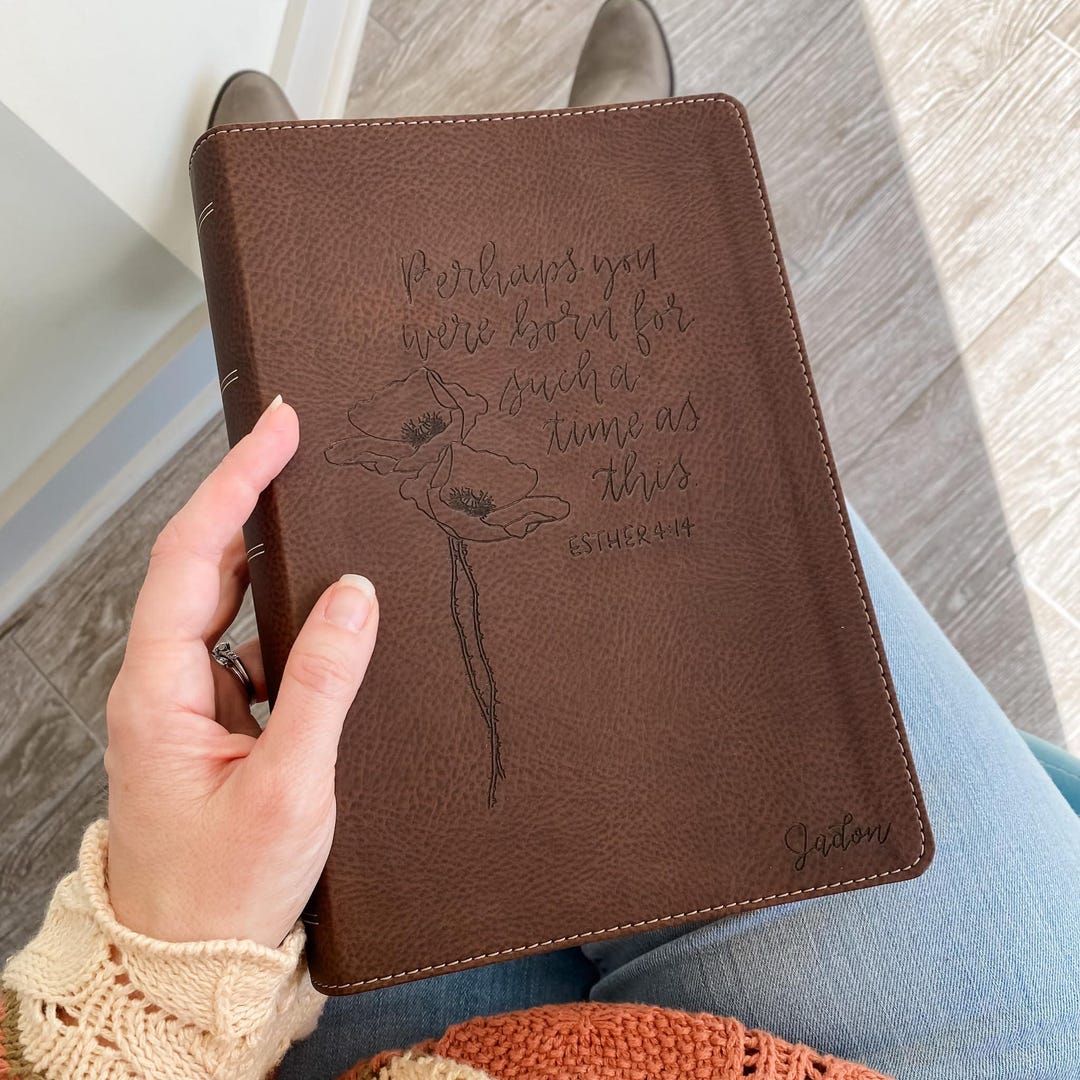 Perhaps you
were born for
such a
time as
this.
ESTHER 4:14
Jadon